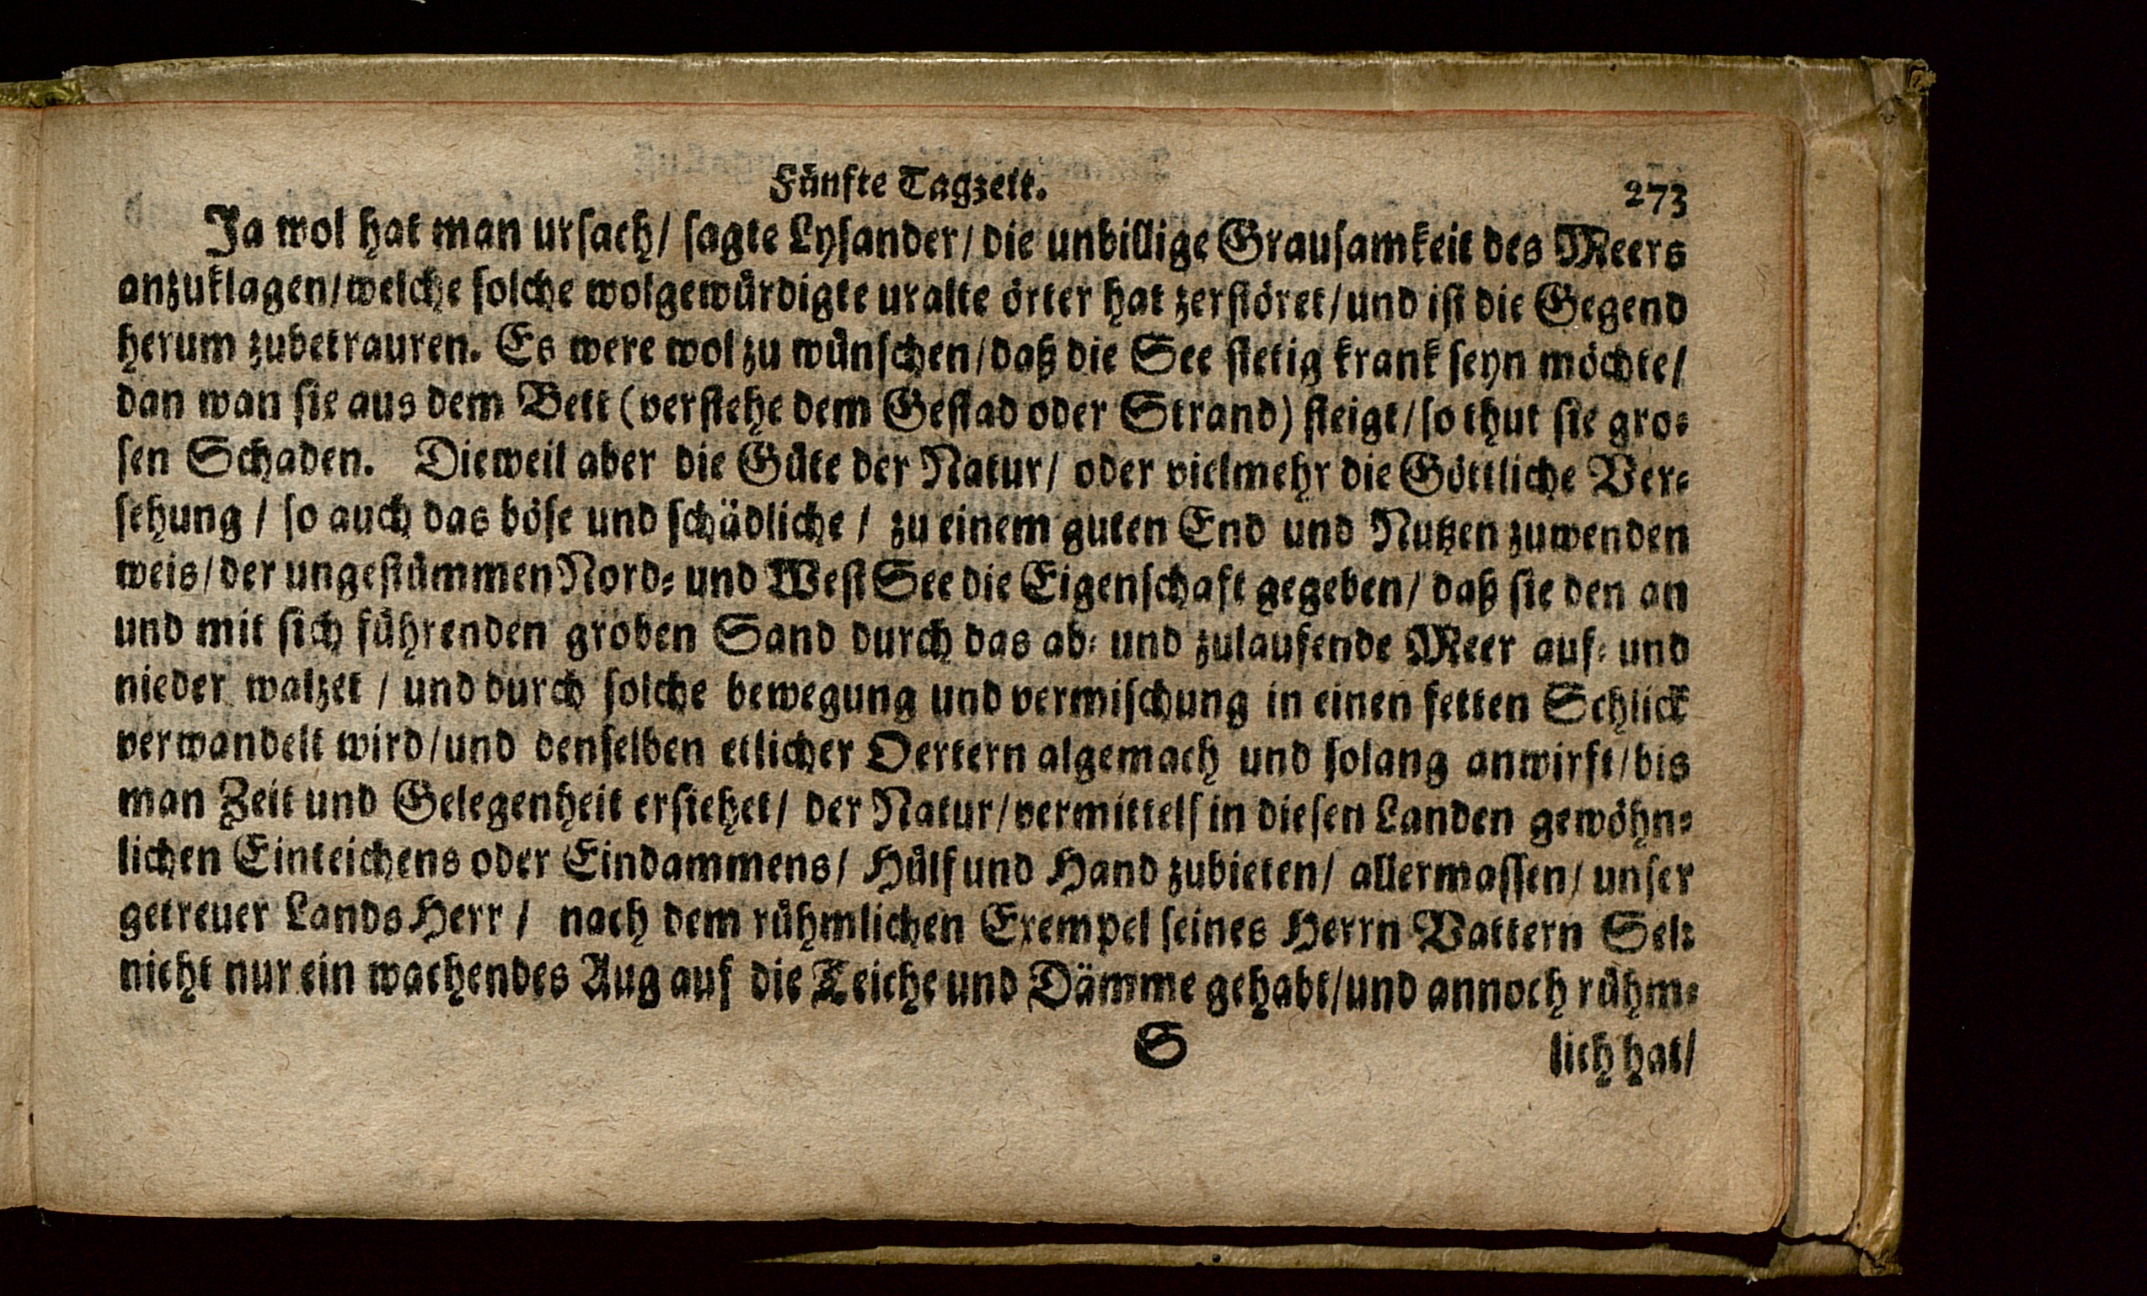 Fünfte Tagzeit. 273
Ja wol hat man ursach/ sagte Lysander/ die unbillige Grausamkeit des Meers
anzuklagen/welche solche wolgewürdigte uralte örter hat zerstöret/und ist die Gegend
herum zubetrauren. Es were wol zu wünschen/daß die See stetig krank seyn möchte/
dan wan sie aus dem Bett (verstehe dem Gestad oder Strand) steigt/so thut sie gro-
sen Schaden. Dieweil aber die Güte der Natur/ oder vielmehr die Göttliche Ver-
sehung / so auch das böse und schädliche / zu einem guten End und Nutzen zuwenden
weis/der ungestümmen Nord- und West See die Eigenschaft gegeben/ daß sie den an
und mit sich führenden groben Sand durch das ab- und zulaufende Meer auf- und
nieder walzet / und durch solche bewegung und vermischung in einen fetten Schlick
verwandelt wird/und denselben etlicher Oertern algemach und solang anwirft/bis
man Zeit und Gelegenheit ersiehet/ der Natur/vermittels in diesen Landen gewöhn-
lichen Einteichens oder Eindammens/ Hülf und Hand zubieten/ allermassen/ unser
getreuer Lands Herr / nach dem rühmlichen Exempel seines Herrn Vattern Sel:
nicht nur ein wachendes Aug auf die Teiche und Dämme gehabt/und annoch rühm-
S lich hat/